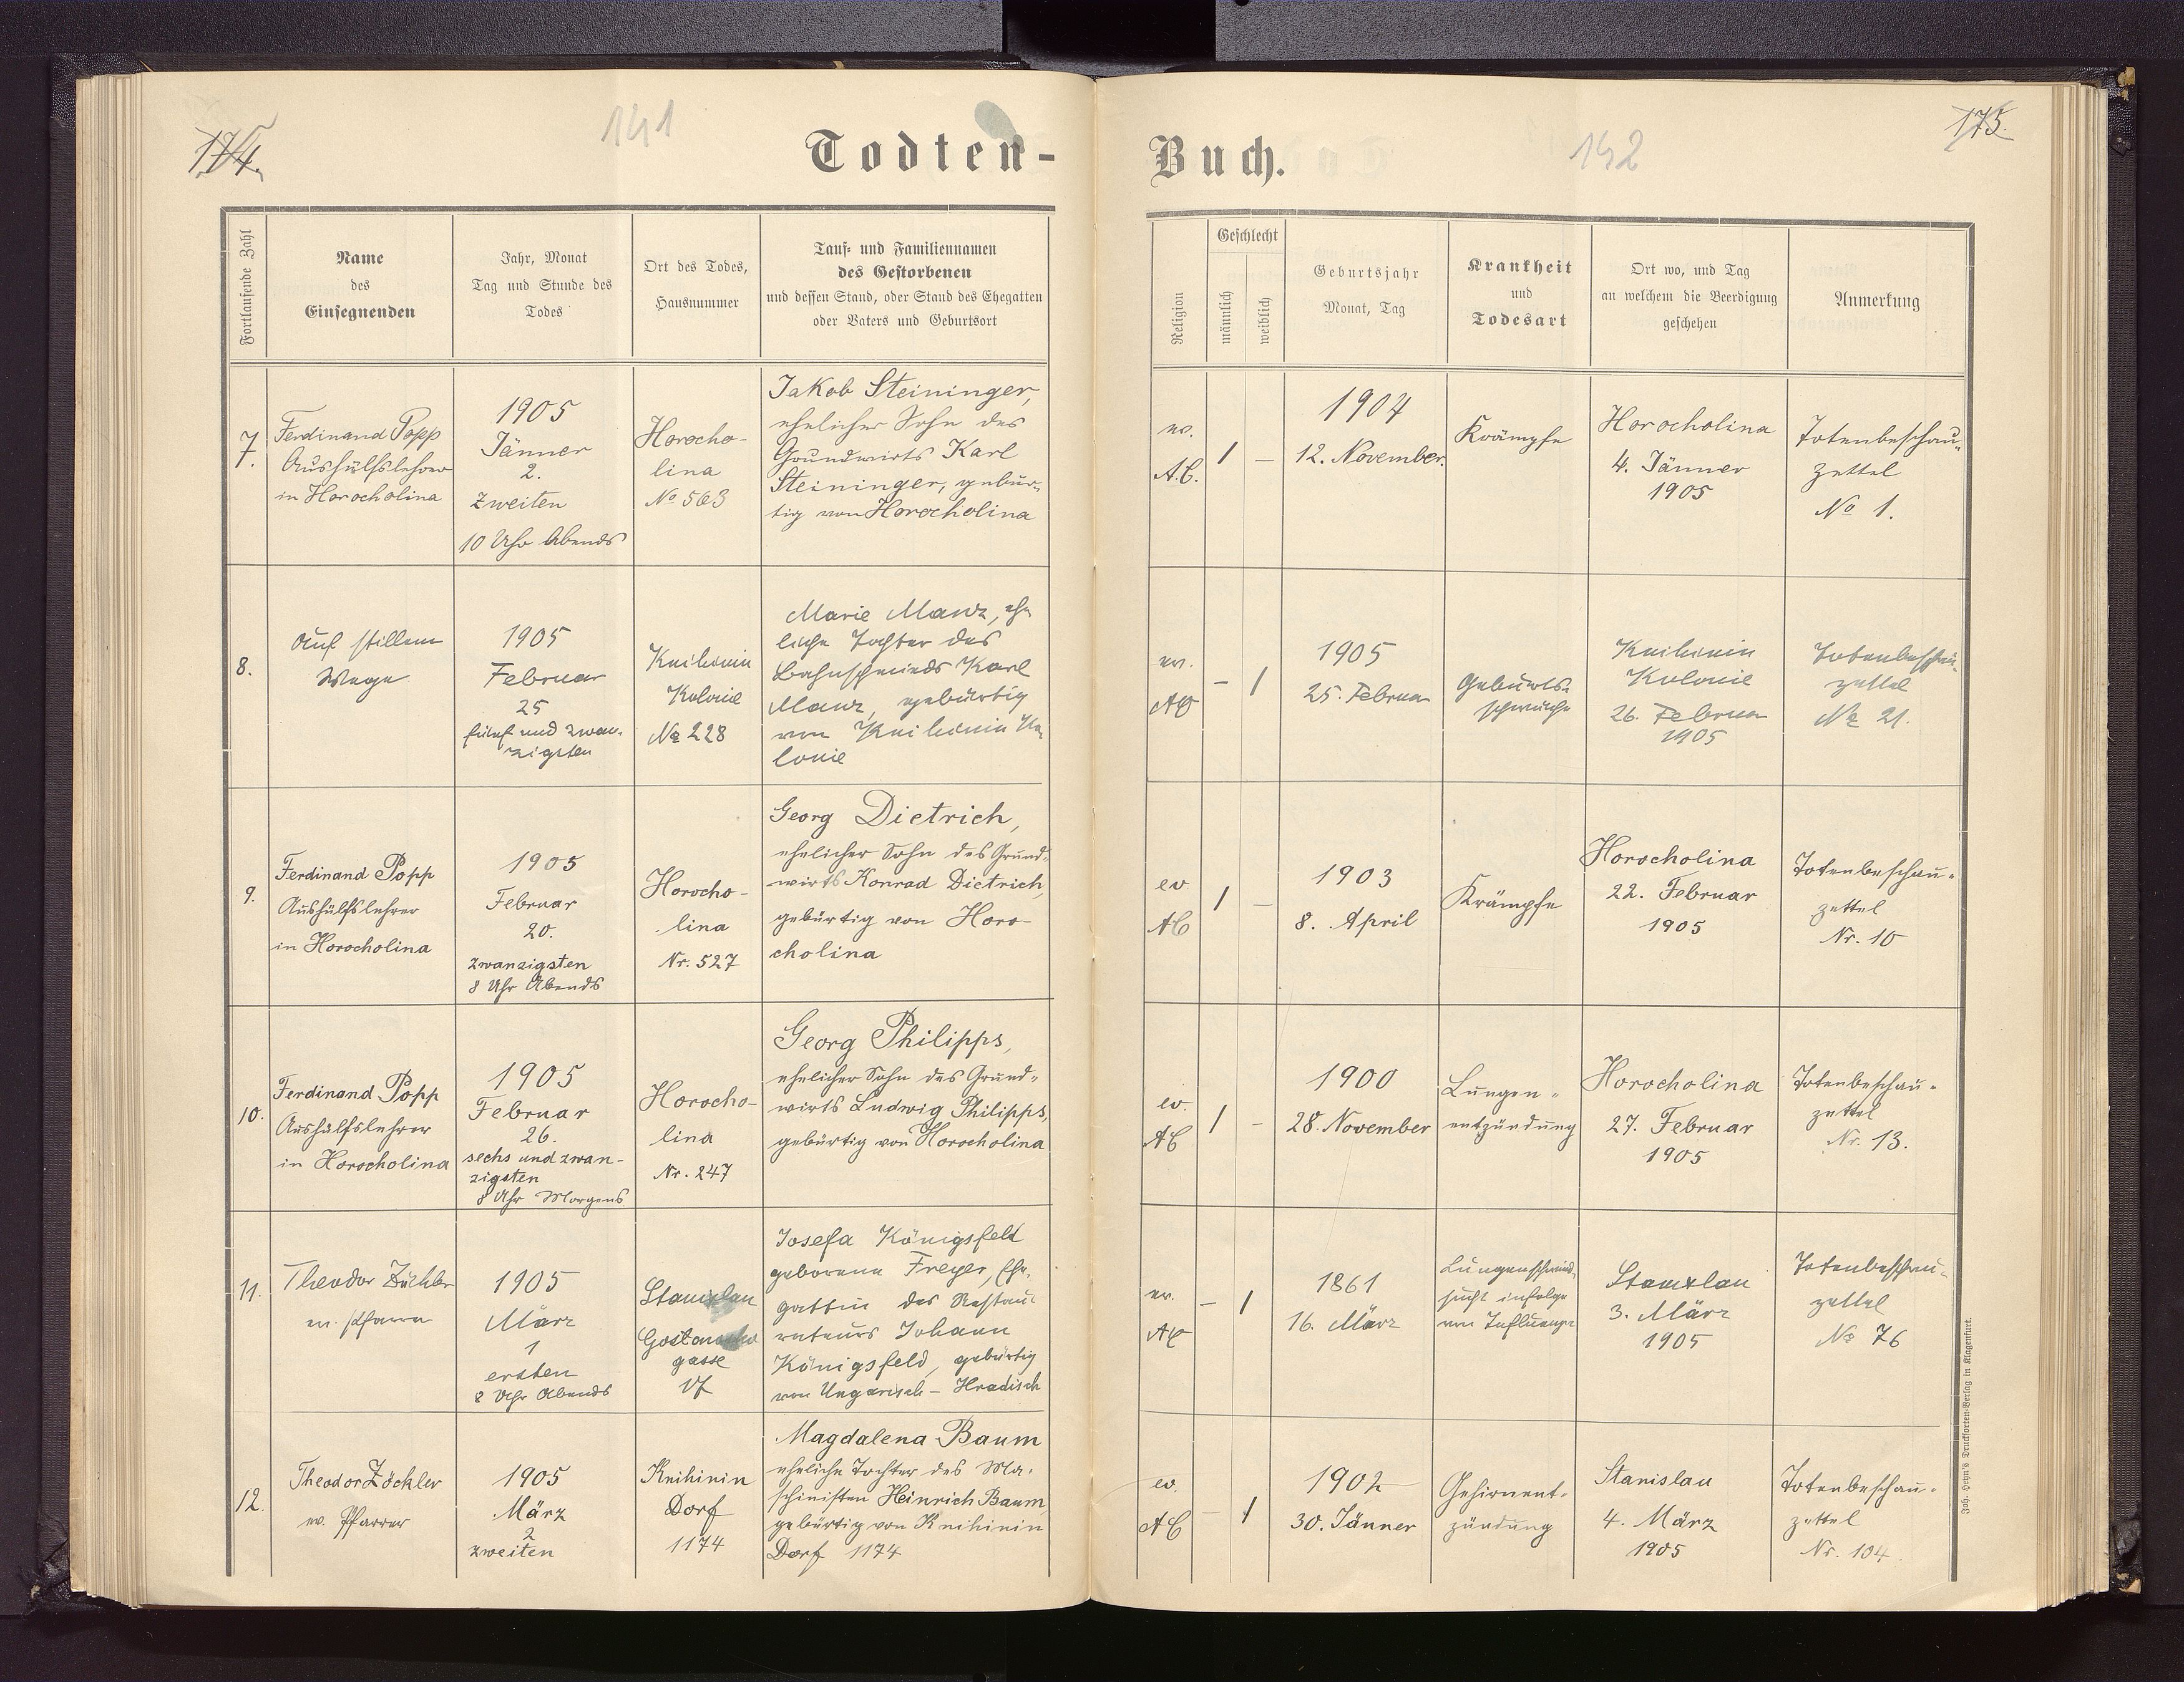 174.
141
Todten-
Fortlaufende Zahl
Name
des
Einsegnenden
Jahr, Monat
Tag und Stunde des
Todes
Ort des Todes,
Hausnummer
Tauf- und Familiennamen
des Gestorbenen
und dessen Stand, oder Stand des Ehegatten
oder Vaters und Geburtsort
7.
Ferdinand Popp
Aushülfslehrer
in Horocholina
1905
Jänner
2.
zweiten
10 Uhr Abends
Horocho-
lina
No 563
Jakob Steininger,
ehelicher Sohn des
Grundwirts Karl
Steininger, gebür-
tig von Horocholina
8.
Auf stillem
Wege
1905
Februar
25
fünf und zwan-
zigsten
Knihinin
Kolonie
No 228
Marie Manz, ehe
liche Tochter des
Bahnschmieds Karl
Manz, gebürtig
von Knihinin Ko
lonie
9.
Ferdinand Popp
Aushülfslehrer
in Horocholina
1905
Februar
20.
zwanzigsten
8 Uhr Abends
Horocho-
lina
Nr. 527
Georg Dietrich,
ehelicher Sohn des Grund-
wirts Konrad Dietrich,
gebürtig von Horo-
cholina
10.
Ferdinand Popp
Aushülfslehrer
in Horocholina
1905
Februar
26.
sechs und zwan-
zigsten
8 Uhr Morgens
Horocho-
lina
Nr. 247
Georg Philipps,
ehelicher Sohn des Grund-
wirts Ludwig Philipps,
gebürtig von Horocholina
11.
Theodor Zöckler
ev. Pfarrer
1905
März
1
ersten
8 Uhr Abends
Stanislau
gasse
Josefa Königsfeld
geborene Freyer, Ehe-
gattin des Restau-
rateurs Johann
Königsfeld, gebürtig
von Ungarisch-Hradisch
12.
Theodor Zöckler
ev. Pfarrer
1905
März
2
zweiten
Knihinin
Dorf
1174
Magdalena Baum
eheliche Tochter des Ma-
schinisten Heinrich Baum,
gebürtig von Knihinin
Dorf 1174
Buch.
142
175.
Religion
Geschlecht
männlich
weiblich
Geburtsjahr
Monat, Tag
Krankheit
und
Todesart
Ort wo, und Tag
an welchem die Beerdigung
geschehen
Anmerkung
ev.
A.C.
1
–
1904
12. November.
Krämpfe
Horocholina
4. Jänner
1905
Totenbeschau-
zettel
No 1.
ev.
AC
–
1
1905
25. Februar
Geburts-
schwäche
Knihinin
Kolonie
26. Februar
1905
Totenbeschau-
zettel
No 21.
ev
AC
1
–
1903
8. April
Krämpfe
Horocholina
22. Februar
1905
Totenbeschau-
zettel
Nr. 10
ev.
AC
1
–
1900
28. November
Lungen-
entzündung
Horocholina
27. Februar
1905
Totenbeschau-
zettel
Nr. 13.
ev.
AC
–
1
1861
16. März
Lungenschwind-
sucht infolge
von Influenza
Stanislau
3. März
1905
Totenbeschau-
zettel
No 76
ev.
AC
–
1
1902
30. Jänner
Gehirnent-
zündung
Stanislau
4. März
1905
Totenbeschau-
zettel
Nr. 104.
Joh. Heyn's Drucksorten-Verlag in Klagenfurt.